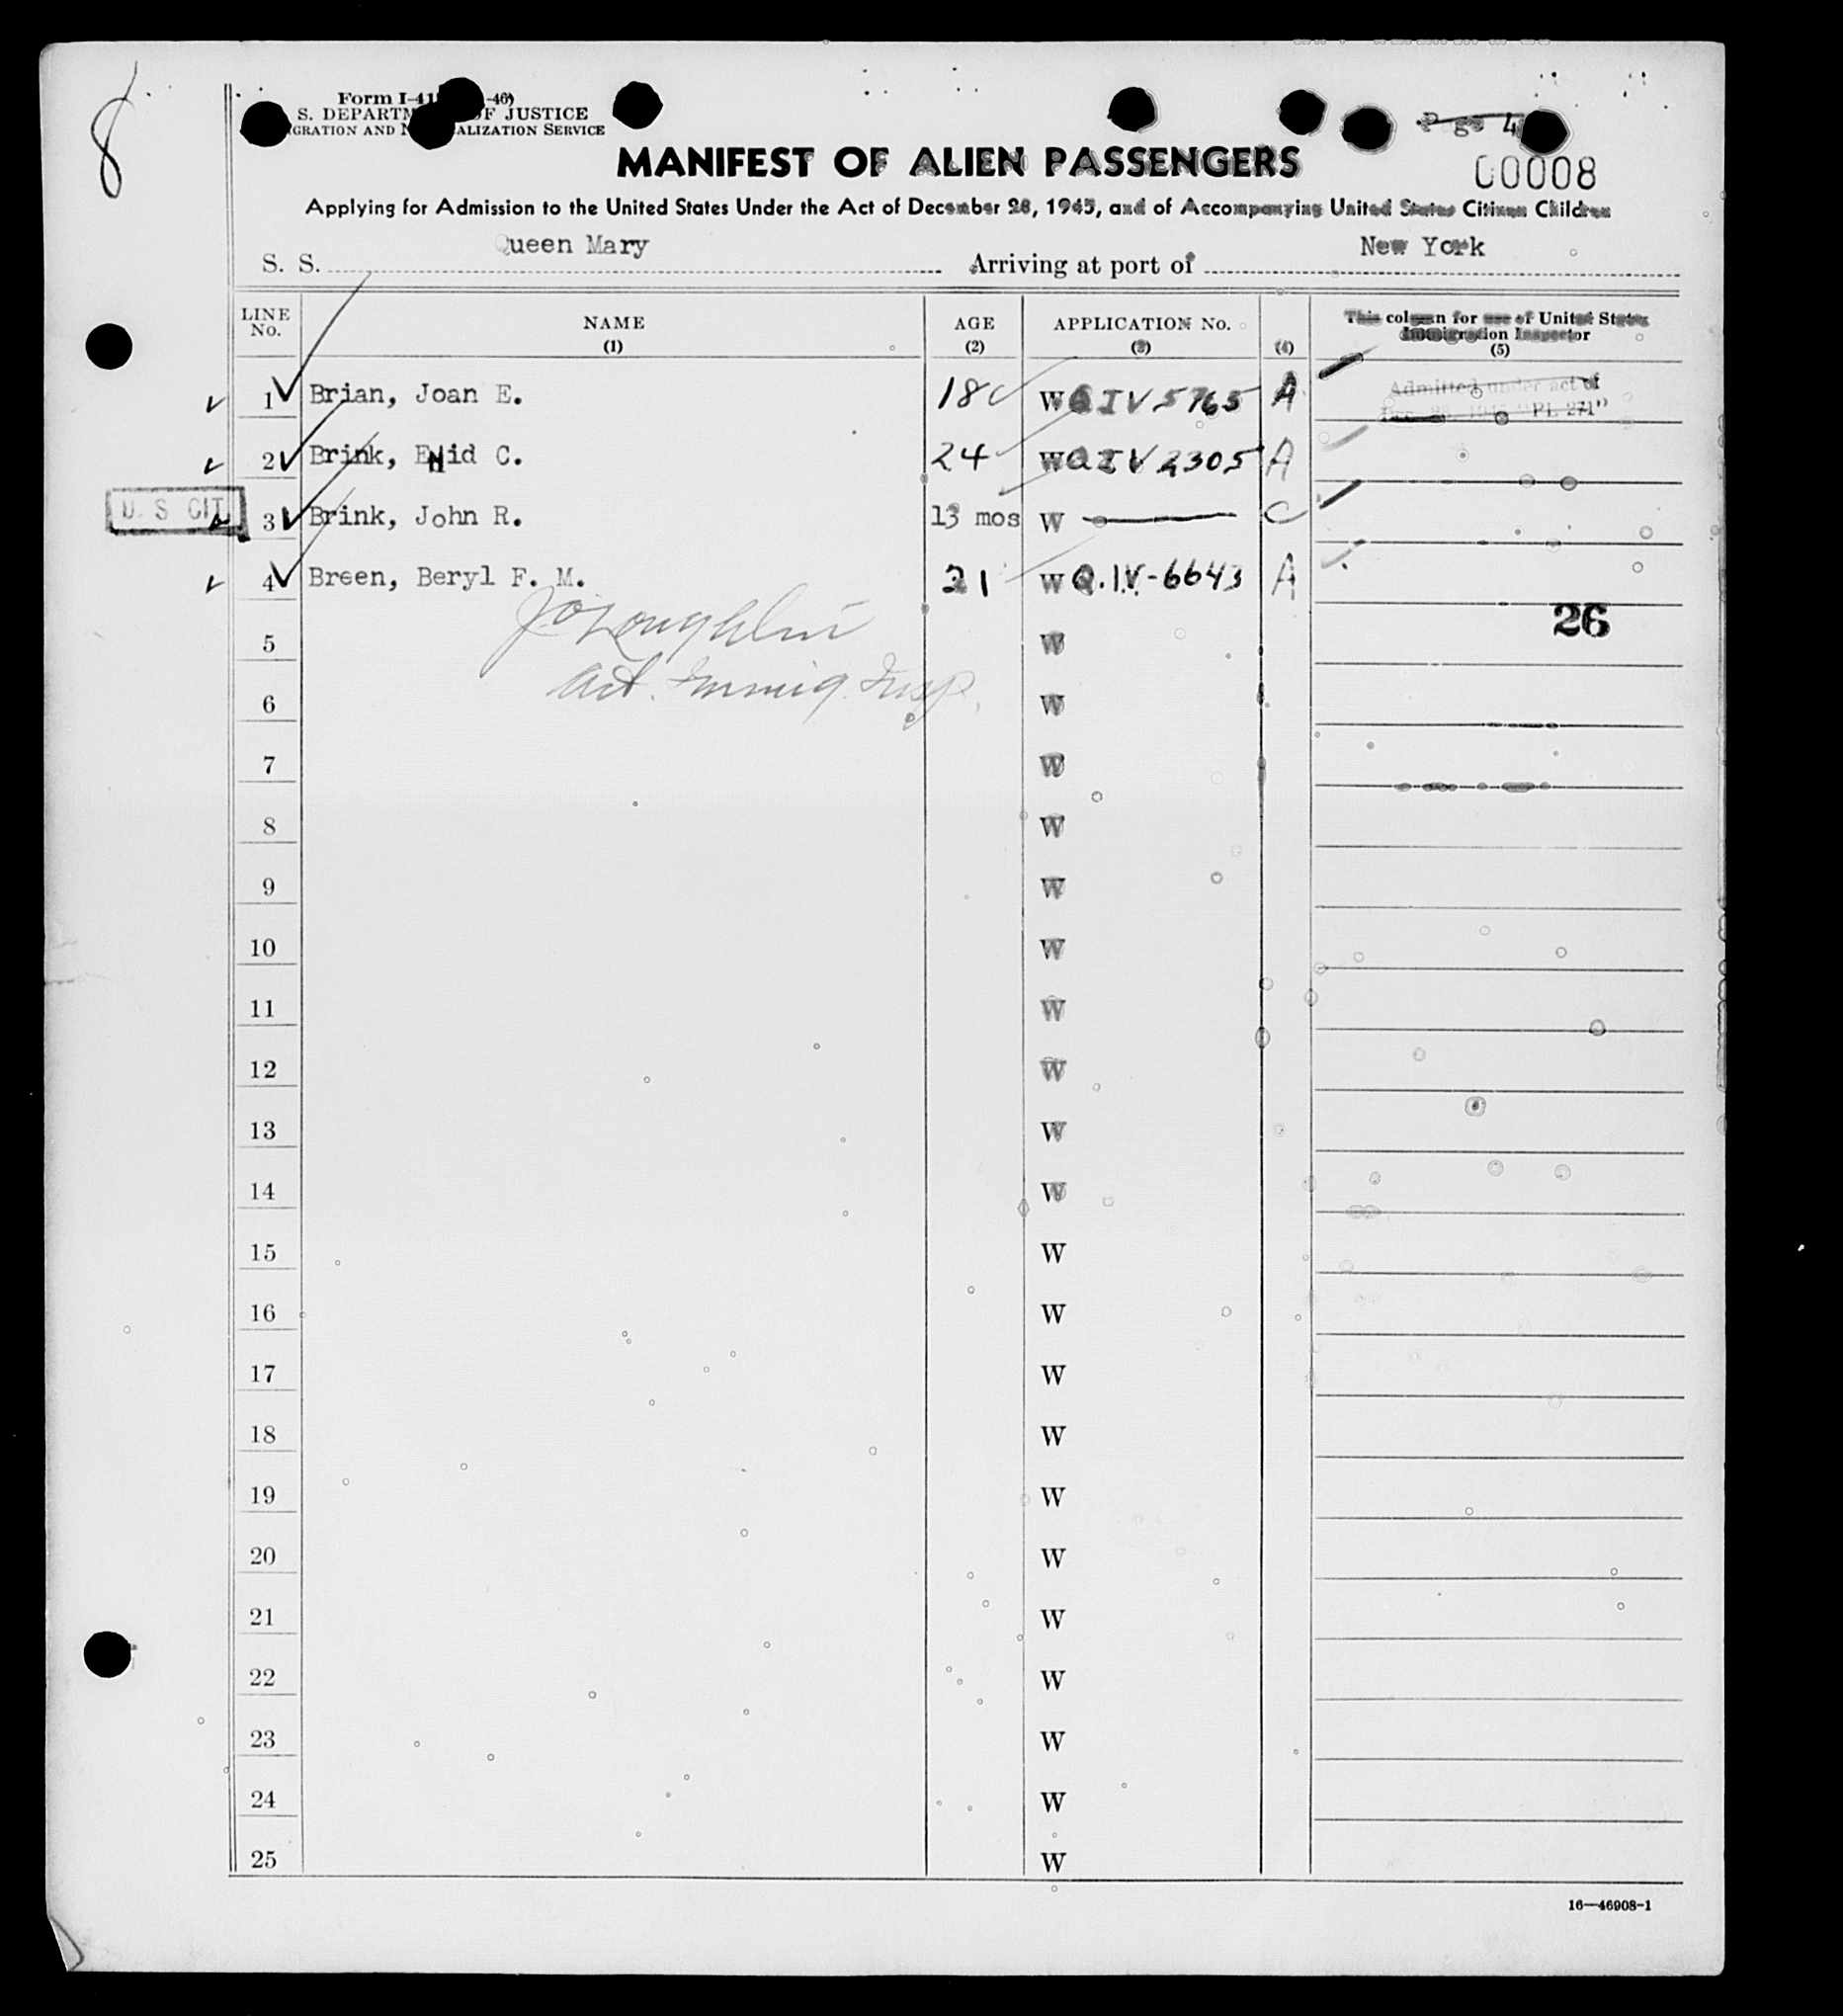 8
Form I-41 -46)
S. DEPARTM OF JUSTICE
GRATION AND N ALIZATION SERVICE
Page 4
MANIFEST OF ALIEN PASSENGERS
00008
Applying for Admission to the United States Under the Act of December 28, 1945, and of Accompanying United States Citizen Children
S. S. Queen Mary Arriving at port of New York
LINE No. NAME (1) AGE (2) APPLICATION No. (3) (4) This column for use of United States Immigration Inspector (5)
1 Brian, Joan E. 18 W Q IV 5765 A Admitted under act of
Dec. 28, 1945 "PL 271"
2 Brink, ENid C. 24 W Q IV 2305 A
U. S CIT 3 Brink, John R. 13 mos W — C
4 Breen, Beryl F. M. 21 W Q.I.V.-6643 A
26
J O'Loughlin
5 W
Act. Immig. Insp.
6 W
7 W
8 W
9 W
10 W
11 W
12 W
13 W
14 W
15 W
16 W
17 W
18 W
19 W
20 W
21 W
22 W
23 W
24 W
25 W
16—46908-1